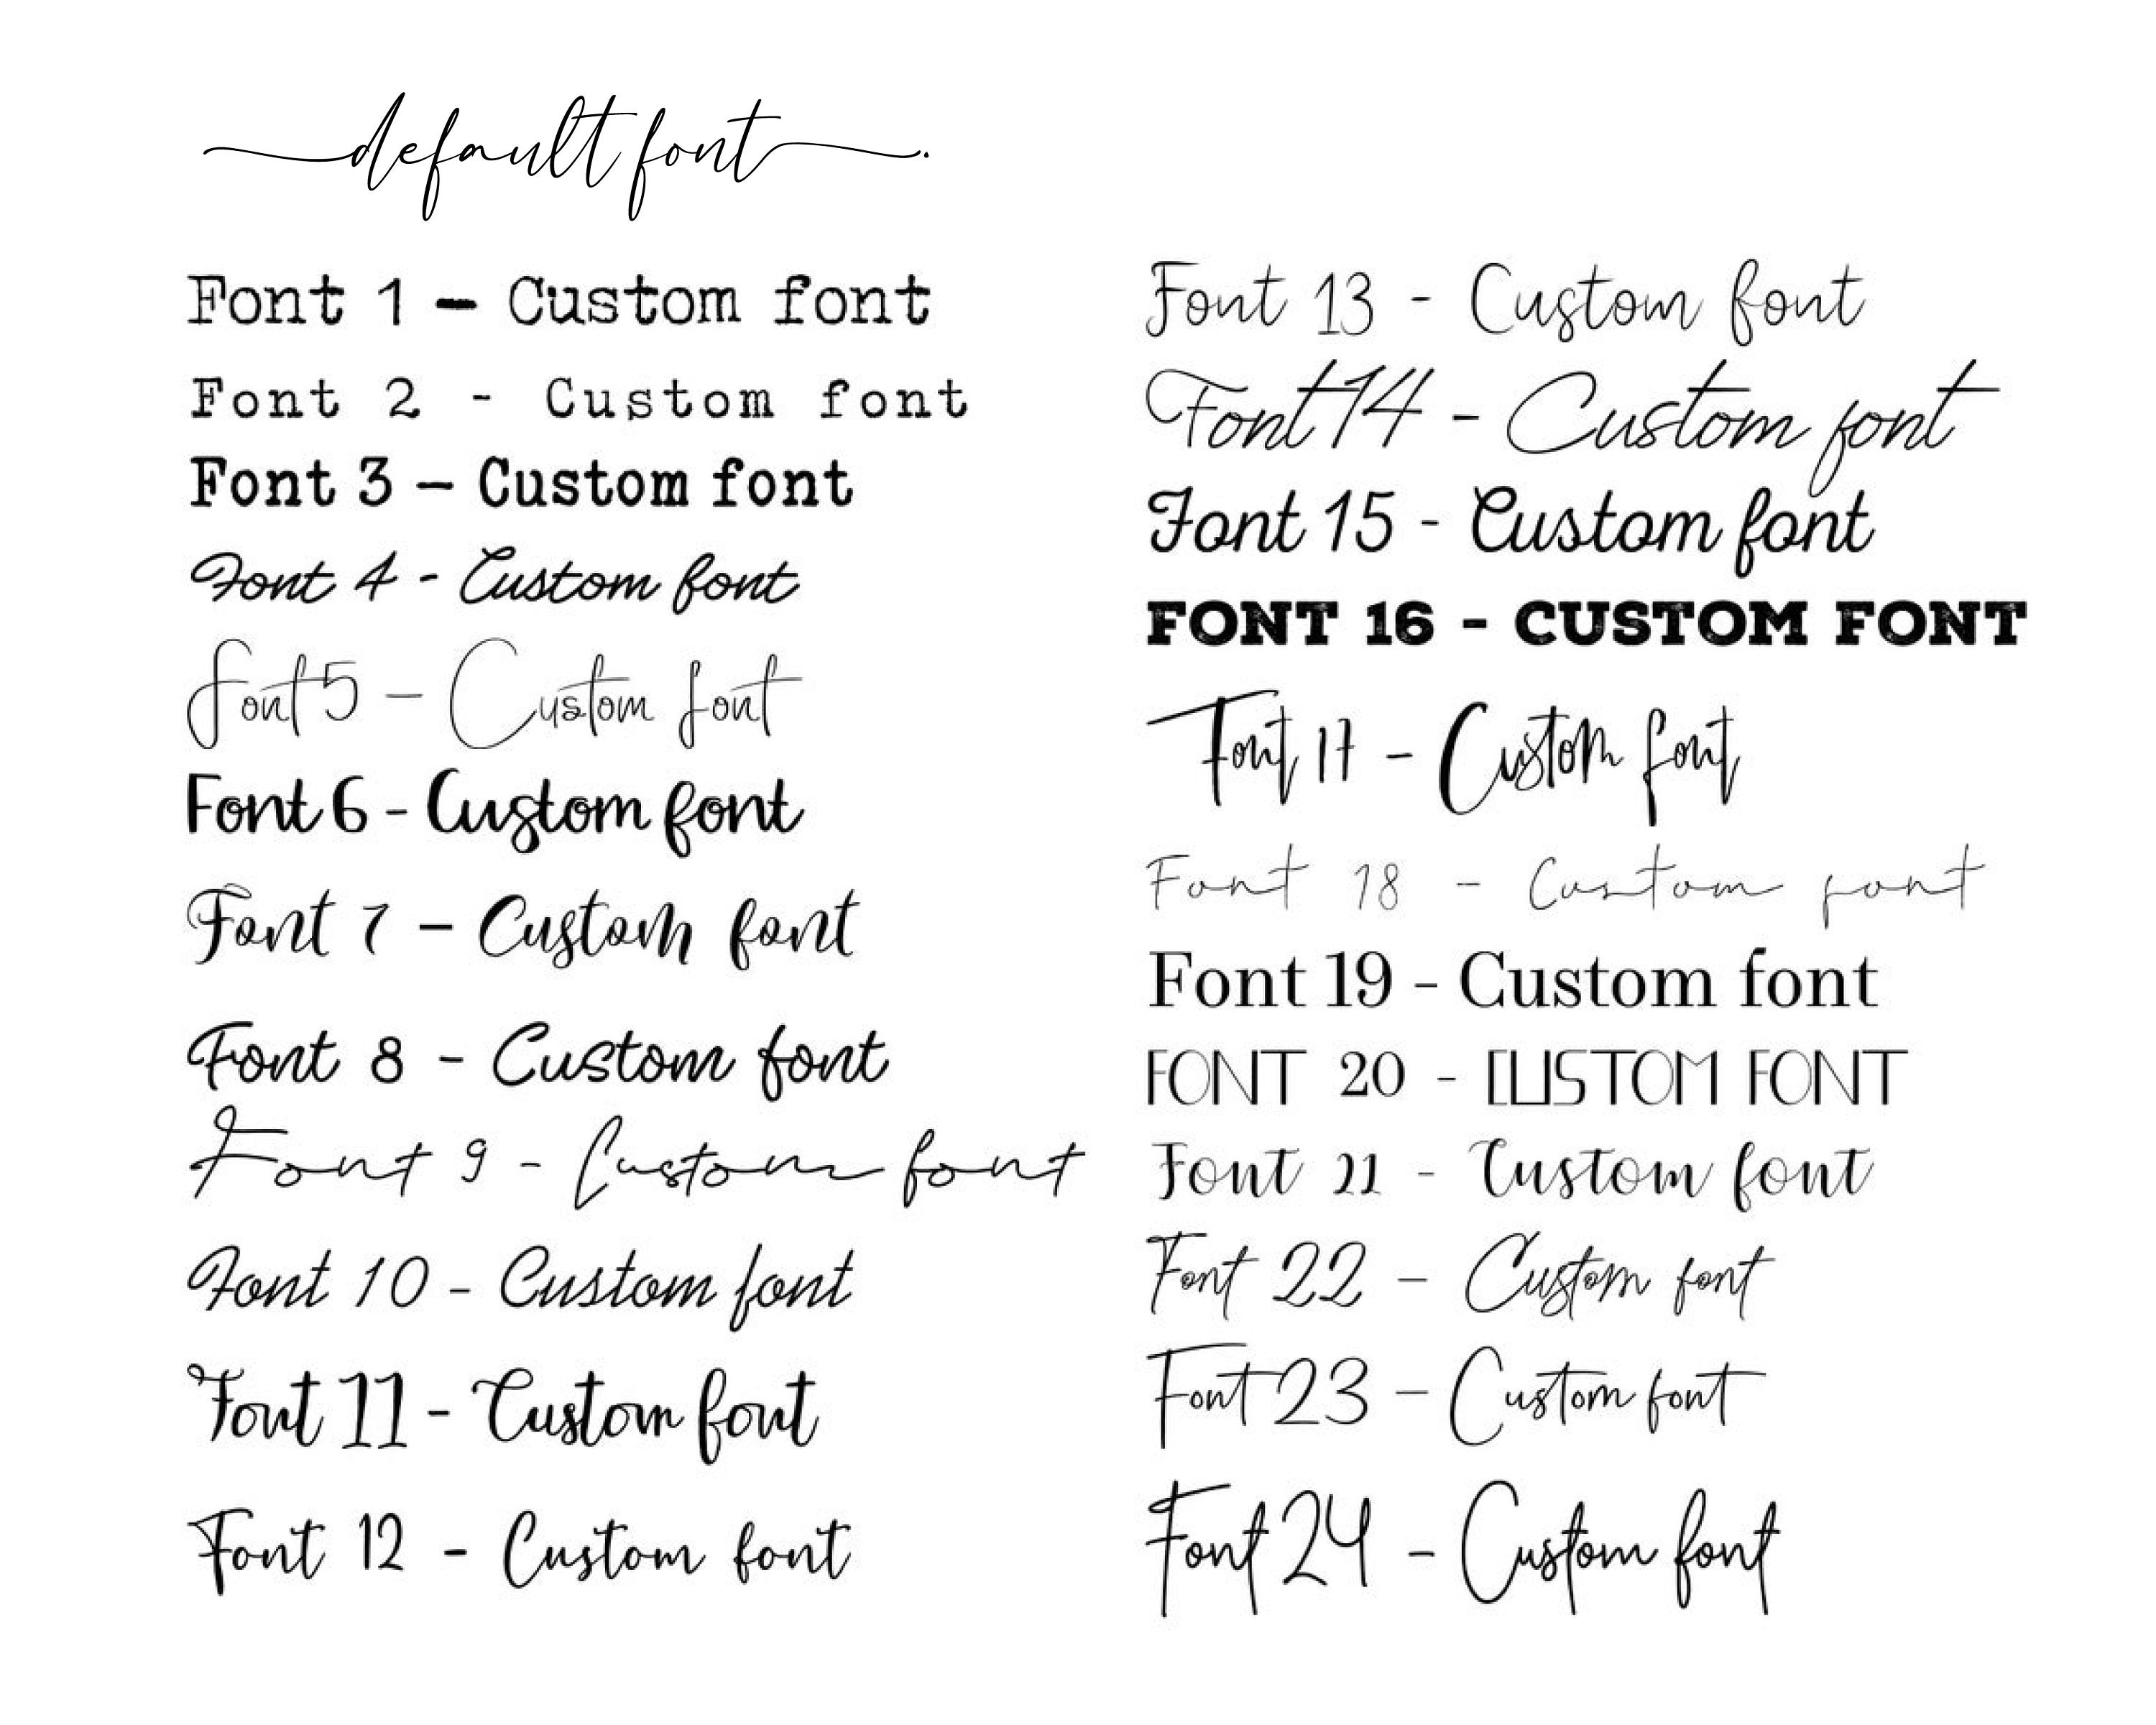 default font.
Font 1 – Custom font
Font 2 - Custom font
Font 3 – Custom font
Font 4 - Custom font
Font 5 – Custom font
Font 6 - Custom font
Font 7 – Custom font
Font 8 - Custom font
Font 9 - Custom font
Font 10 - Custom font
Font 11 - Custom font
Font 12 - Custom font
Font 13 - Custom font
Font 14 - Custom font
Font 15 - Custom font
FONT 16 - CUSTOM FONT
Font 17 - Custom font
Font 18 - Custom font
Font 19 - Custom font
FONT 20 - CUSTOM FONT
Font 21 - Custom font
Font 22 – Custom font
Font 23 – Custom font
Font 24 - Custom font